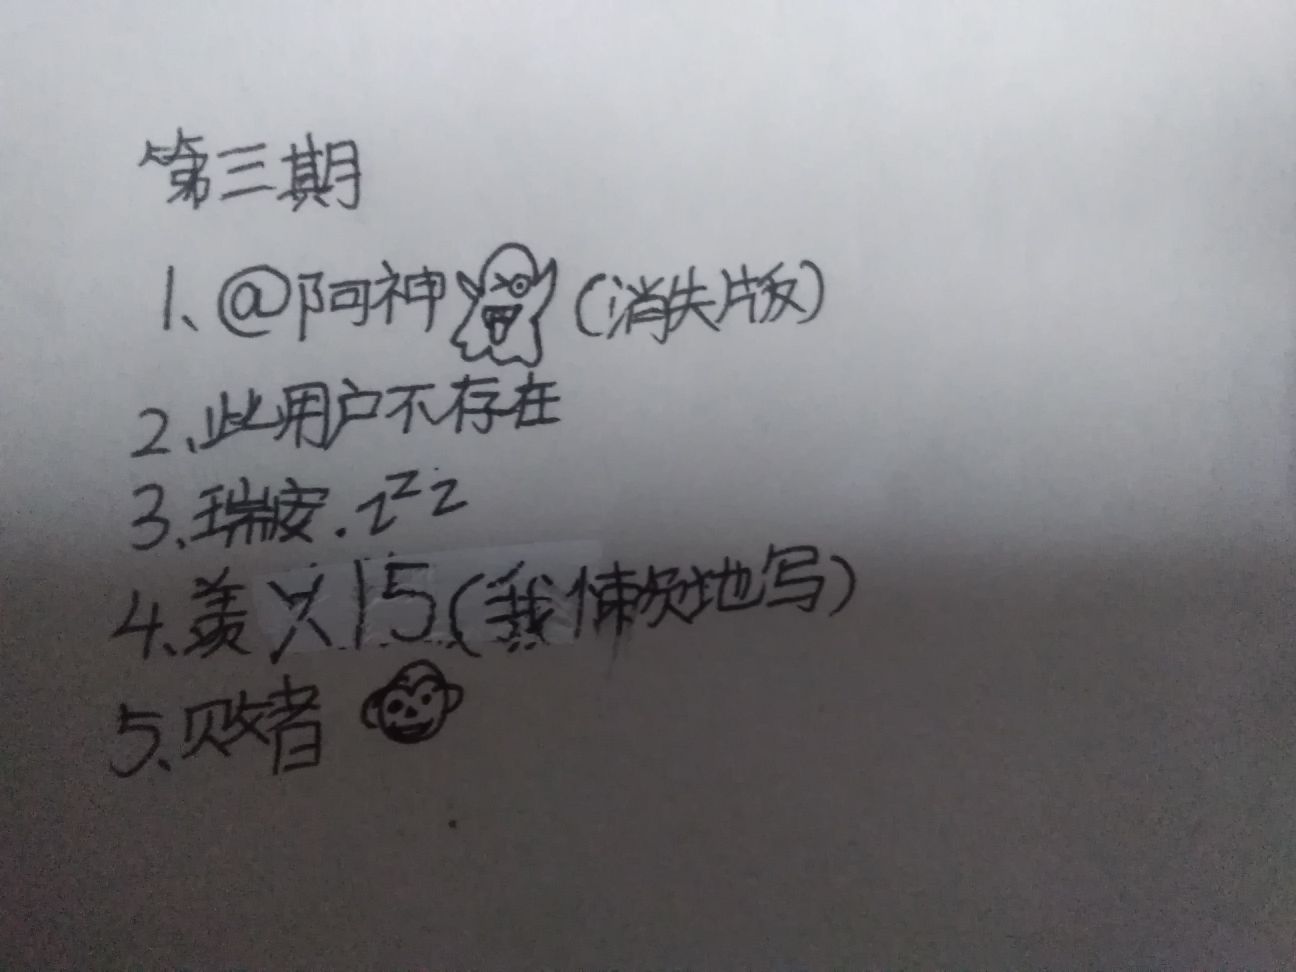 第三期
1、@阿神(消失版)
2、此用户不存在
3、瑞安.zzz
4、羡X15(我悚然地写)
5、败者